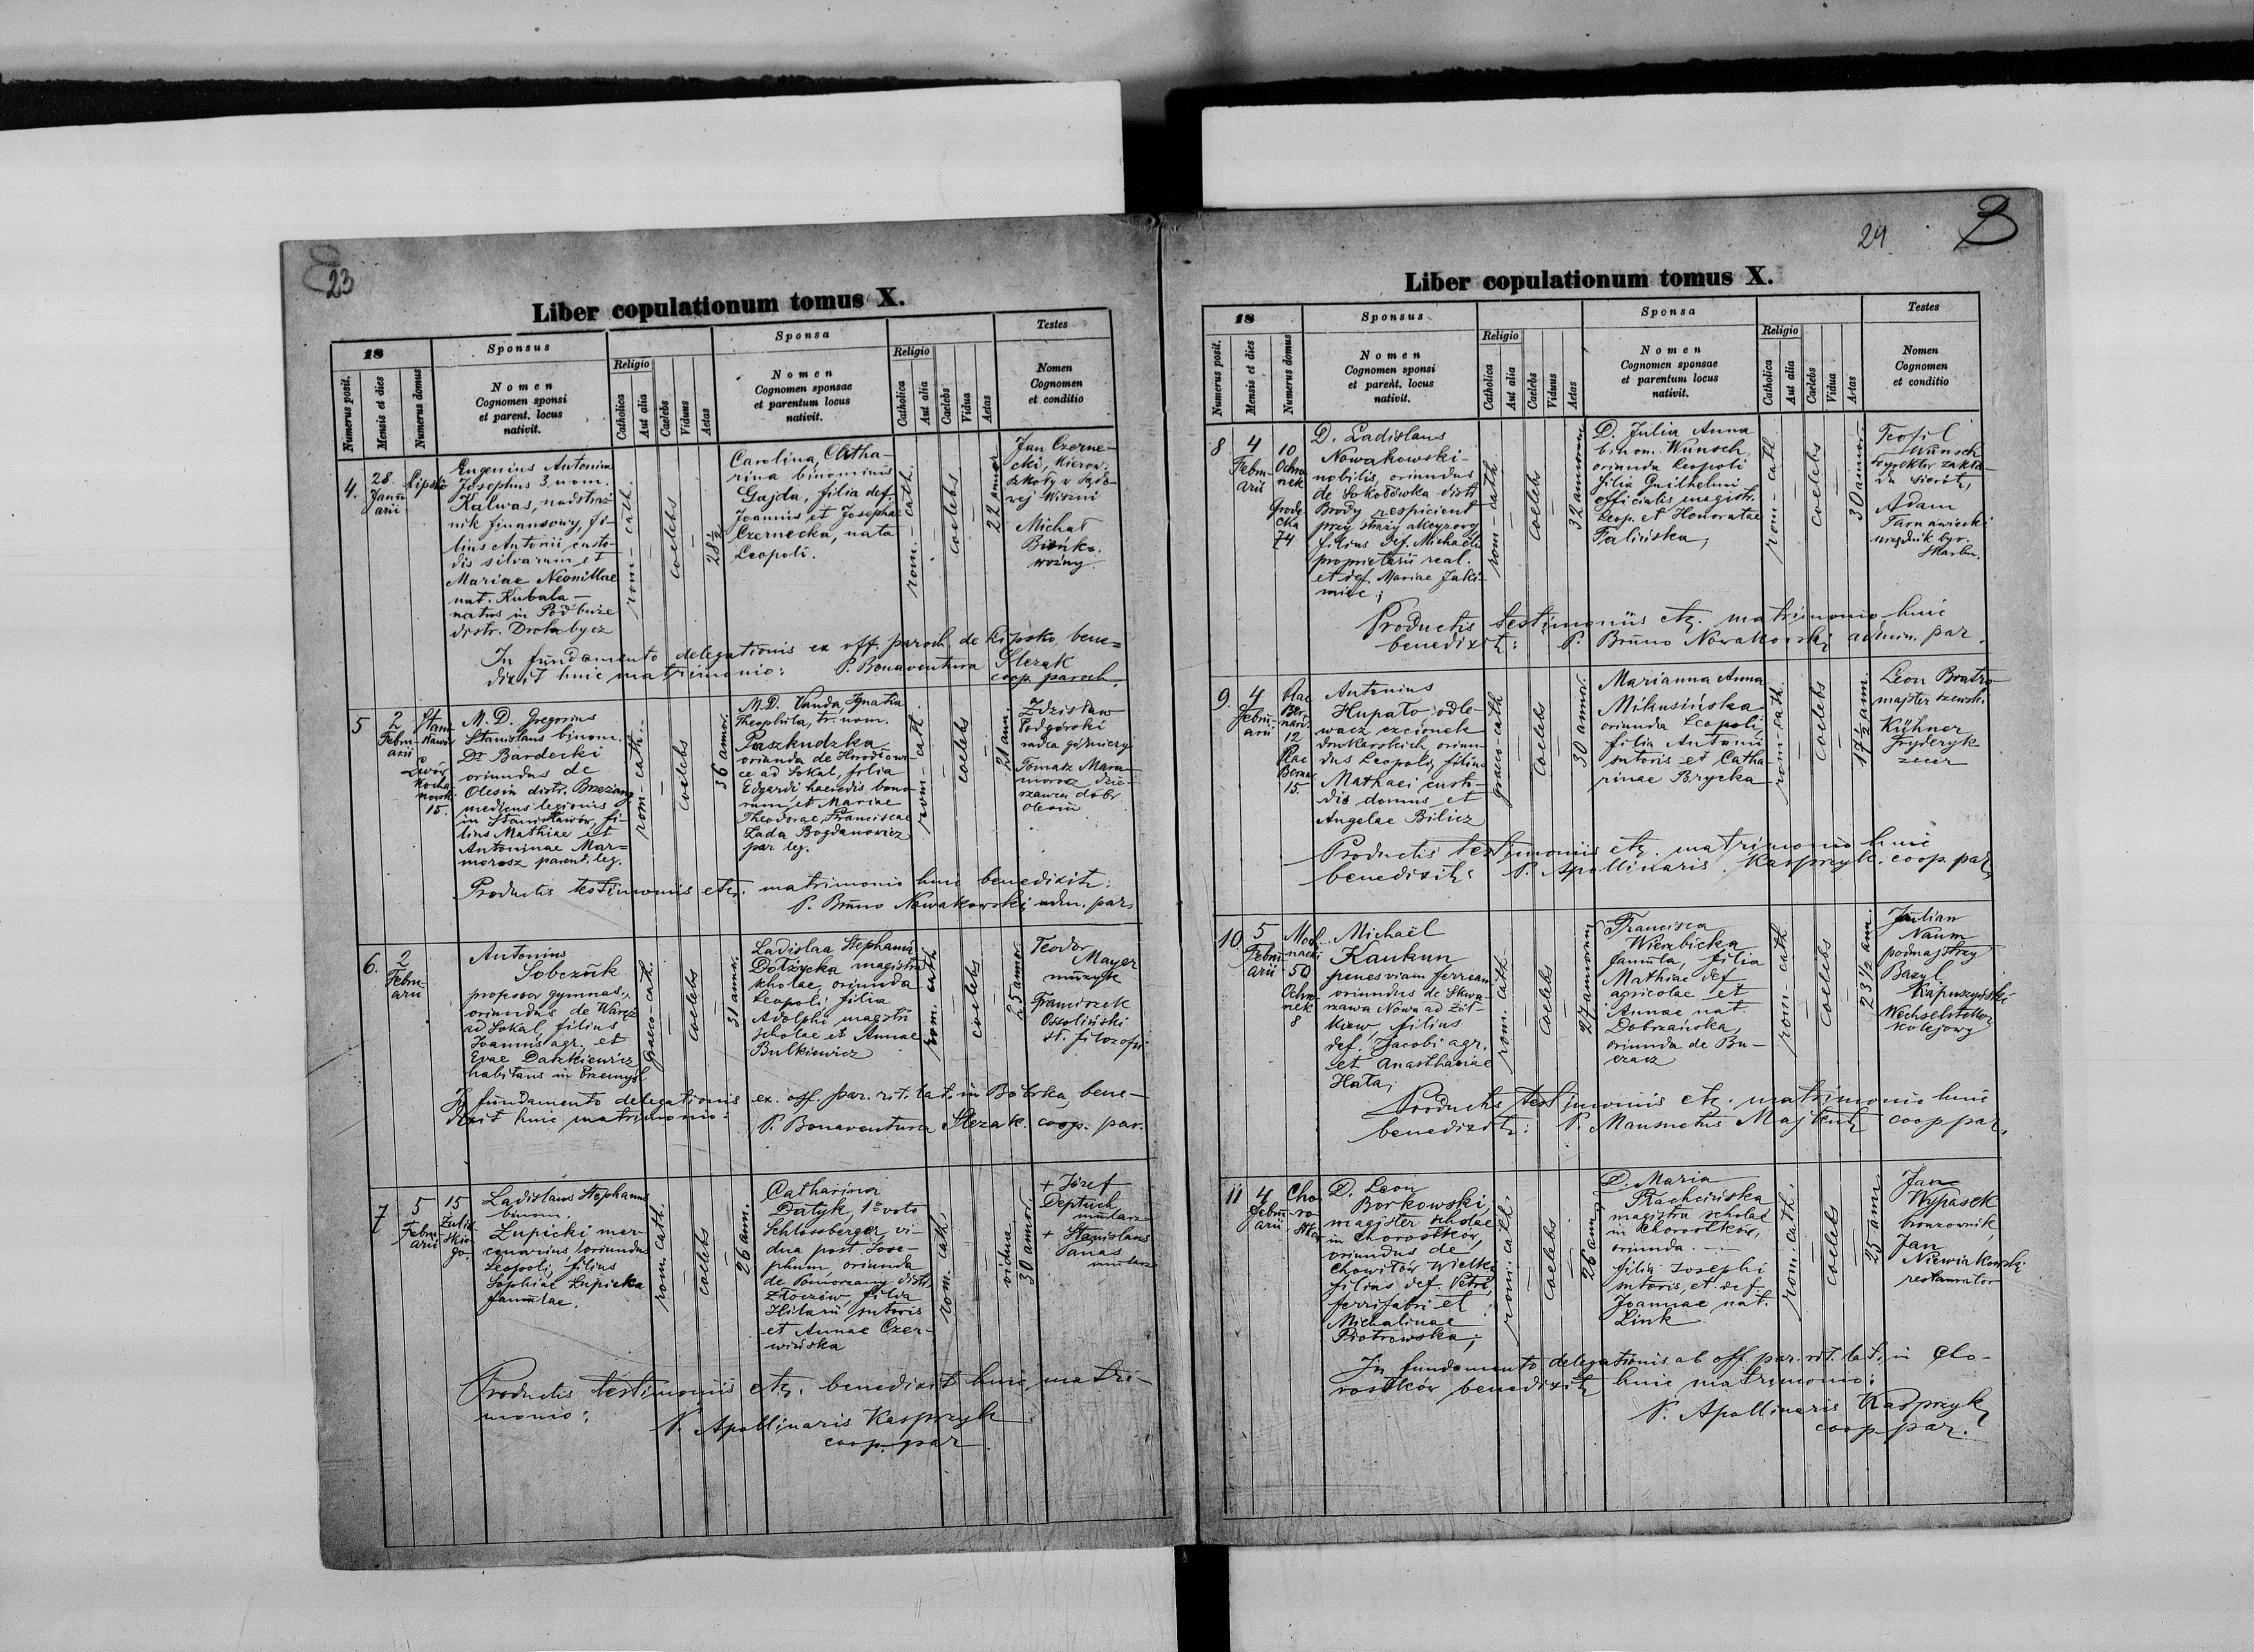 23
Liber copulationum tomus X.
18
Sponsus
Sponsa
Testes
Numerus posit.
Mensis et dies
Numerus domus
Nomen
Cognomen sponsi
et parent. locus
nativit.
Religio
Catholica
Aut alia
Caelebs
Viduus
Aetas
Nomen
Cognomen sponsae
et parentum locus
nativit.
Religio
Catholica
Aut alia
Caelebs
Vidua
Aetas
Nomen
Cognomen
et conditio
4.
28
Janu
arii
Lipsko
Eugenius Antonius
Josephus 3 nom.
Kalwas, nadstraż
nik finansowy, fi-
lius Antonii custo-
dis silvarum et
Mariae Neonillae
nat. Kubala -
natus in Podbuże
distr. Drohobycz
rom - cath.
coelebs
28 1/2
Carolina, Catha-
rina binominis
Gajda, filia def.
Joannis et Josephae
Czernecka, nata
Leopoli.
rom. - cath.
coelebs
22 annor
Jan Czerne-
cki, kierow.
szkoły w Sądo-
wej Wiszni
Michał
Bieńko.
woźny
In fundamento delegationis ex off. paroch. de Lipsko, bene=
dixit huic matrimonio: P. Bonaventura Slezak
coop. paroch.
5
2
Febru
arii
Stani-
sławów
Lwów
Kocha
nowski
15.
M. D. Gregorius
Stanislaus binom.
Dr Bardecki
oriundus de
Olesin distr. Brzeżany
medicus legionis
in Stanisławów, fi-
lius Mathiae et
Antoninae Mar=
morosz parent. leg.
rom - cath.
coelebs
36 annor.
M. D. Vanda Ignatia
Theophila, tr. nom.
Paszkudzka
oriunda de Horodłowi-
ce ad Sokal, filia
Edgardi haeredis bono
rum et Mariae
Theodorae Franciscae
Łada Bogdanowicz
par leg.
rom - cath.
coelebs
21 ann.
Zdzisław
Podgórski
radca górniczy
Tomasz Mara
morosz dzie-
rżawca dóbr
Olesin
Productis testimoniis etz. matrimonio huic benedixit:
P. Bruno Nowakowski, adm. par.
6.
2
Febru
arii
Antonius
Sobczuk
professor gymnas.,
oriundus de Waręż
ad Sokal, filius
Joannis agr. et
Evae Daszkiewicz
habitans in Przemyśl
Graeco cath.
coelebs
31 annor.
Ladislaa Stephania
Dołżycka magistra
scholae, oriunda
Leopoli, filia
Adolphi magistri
scholae et Annae
Bulkiewicz
rom. cath
coelebs
25 annor.
Teodor
Mayer
muzyk
Franciszek
Ossoliński
st. filozofii
In fundamento delegationis ex. off. par. rit. lat. in Bóbrka, bene-
dixit huic matrimonio: P. Bonaventura Slezak. coop. par.
7
5
Febru
arii
15
Zuliń
skie-
go
Ladislaus Stephanus
binom.
Łupicki mer-
cenarius, oriundus
Leopoli, filius
Sophiae Łupicka
famulae.
rom. cath.
coelebs
26 ann.
Catharina
Datyk, 1º voto
Schlossberger vi-
dua post Jose-
phum, oriunda
de Pomorzany distr.
Złoczów, filia
Hilarii sutoris
et Annae Czer-
wińska
rom. cath.
vidua
30 annor.
+ Józef
Deptuch
mularz
+ Stanislaus
Panas
mularz
Productis testimoniis etz. benedixit huic matri-
monio: P. Apollinaris Kasprzyk
coop. par.
24
Liber copulationum tomus X.
18
Sponsus
Sponsa
Testes
Numerus posit.
Mensis et dies
Numerus domus
Nomen
Cognomen sponsi
et parent. locus
nativit.
Religio
Catholica
Aut alia
Caelebs
Viduus
Aetas
Nomen
Cognomen sponsae
et parentum locus
nativit.
Religio
Catholica
Aut alia
Caelebs
Vidua
Aetas
Nomen
Cognomen
et conditio
8
4
Febru-
arii
10
Ochro
nek
Grode-
cka
74
D. Ladislaus
Nowakowski -
nobilis, oriundus
de Sokołówka distr.
Brody respicient
przy straży akcyzowej
filius def. Michaëlis
proprietarii real.
et def. Mariae Jaki-
miec;
rom - cath
coelebs
32 annorum
D. Julia Anna
b. nom. Wünsch
oriunda Leopoli
filia Guilhelmi
officialis magistr.
Leop. et Honoratae
Falińska;
rom - cath.
coelebs
30 annor.
Teofil
Wünsch
dyrektor zakła-
du sierót,
Adam
Tarnawiecki
urzędnik dyr.
skarbu.
Productis testimoniis etz. matrimonio huic
benedixit: P. Bruno Nowakowski admin. par.
9.
4
Febru-
arii
Plac
Ber-
nard-
12
Plac
Bernar
15.
Antonius
Hupało odle-
wacz czcionek
drukarskich, oriun
dus Leopoli, filius
Mathaei custo-
dis domus et
Angelae Bilicz
graeco-cath
coelebs
30 annor.
Marianna Anna
Mikusińska
oriunda Leopoli,
filia Antonii
sutoris et Catha-
rinae Brycka
rom - cath.
coelebs
17 1/2 ann.
Leon Bratro
majster szewski.
Kühner
Fryderyk
zecer
Productis testimoniis etz. matrimonio huic
benedixit: P. Apollinaris Kasprzyk. coop. par.
10
5
Febru-
arii
Moch-
nacki
50
Ochro-
nek
8
Michaël
Kankun
penes viam ferream
oriundus de Skwa-
rzawa Nowa ad Żół-
kiew, filius
def. Jacobi agr.
et Anasthasiae
Hata;
rom. cath.
coelebs
27 annorum
Francisca
Wierzbicka
famula, filia
Mathiae def.
agricolae et
Annae nat.
Dobrzańska,
oriunda de Bu-
czacz
rom - cath
coelebs
23 1/2 ann.
Julian
Naum
podmajstrzy
Bazyl
Kapuszyński
Wechselsteller
kolejowy
Productis testimoniis etz. matrimonio huic
benedixit: P. Mansuetus Majkut coop par.
11
4
Febru-
arii
Cho-
ro-
stków
D. Leon
Borkowski,
magister scholae
in Chorostków,
oriundus de
filius def. Petri
ferrifabri et
Michalinae
Piotrowska;
rom. cath.
coelebs
26 ann.
D. Maria
magistra scholae
in Chorostków,
oriunda
filia Josephi
sutoris, et def.
Joannae nat.
Link
rom. cath.
coelebs
25 ann.
Jan
Wypasek
bronzownik,
Jan
Niewiakowski
restaurator
In fundamento delegationis ab off. par. rit. lat. in Cho-
rostków benedixit huic matrimonio:
P. Apollinaris Kasprzyk
coop. par.